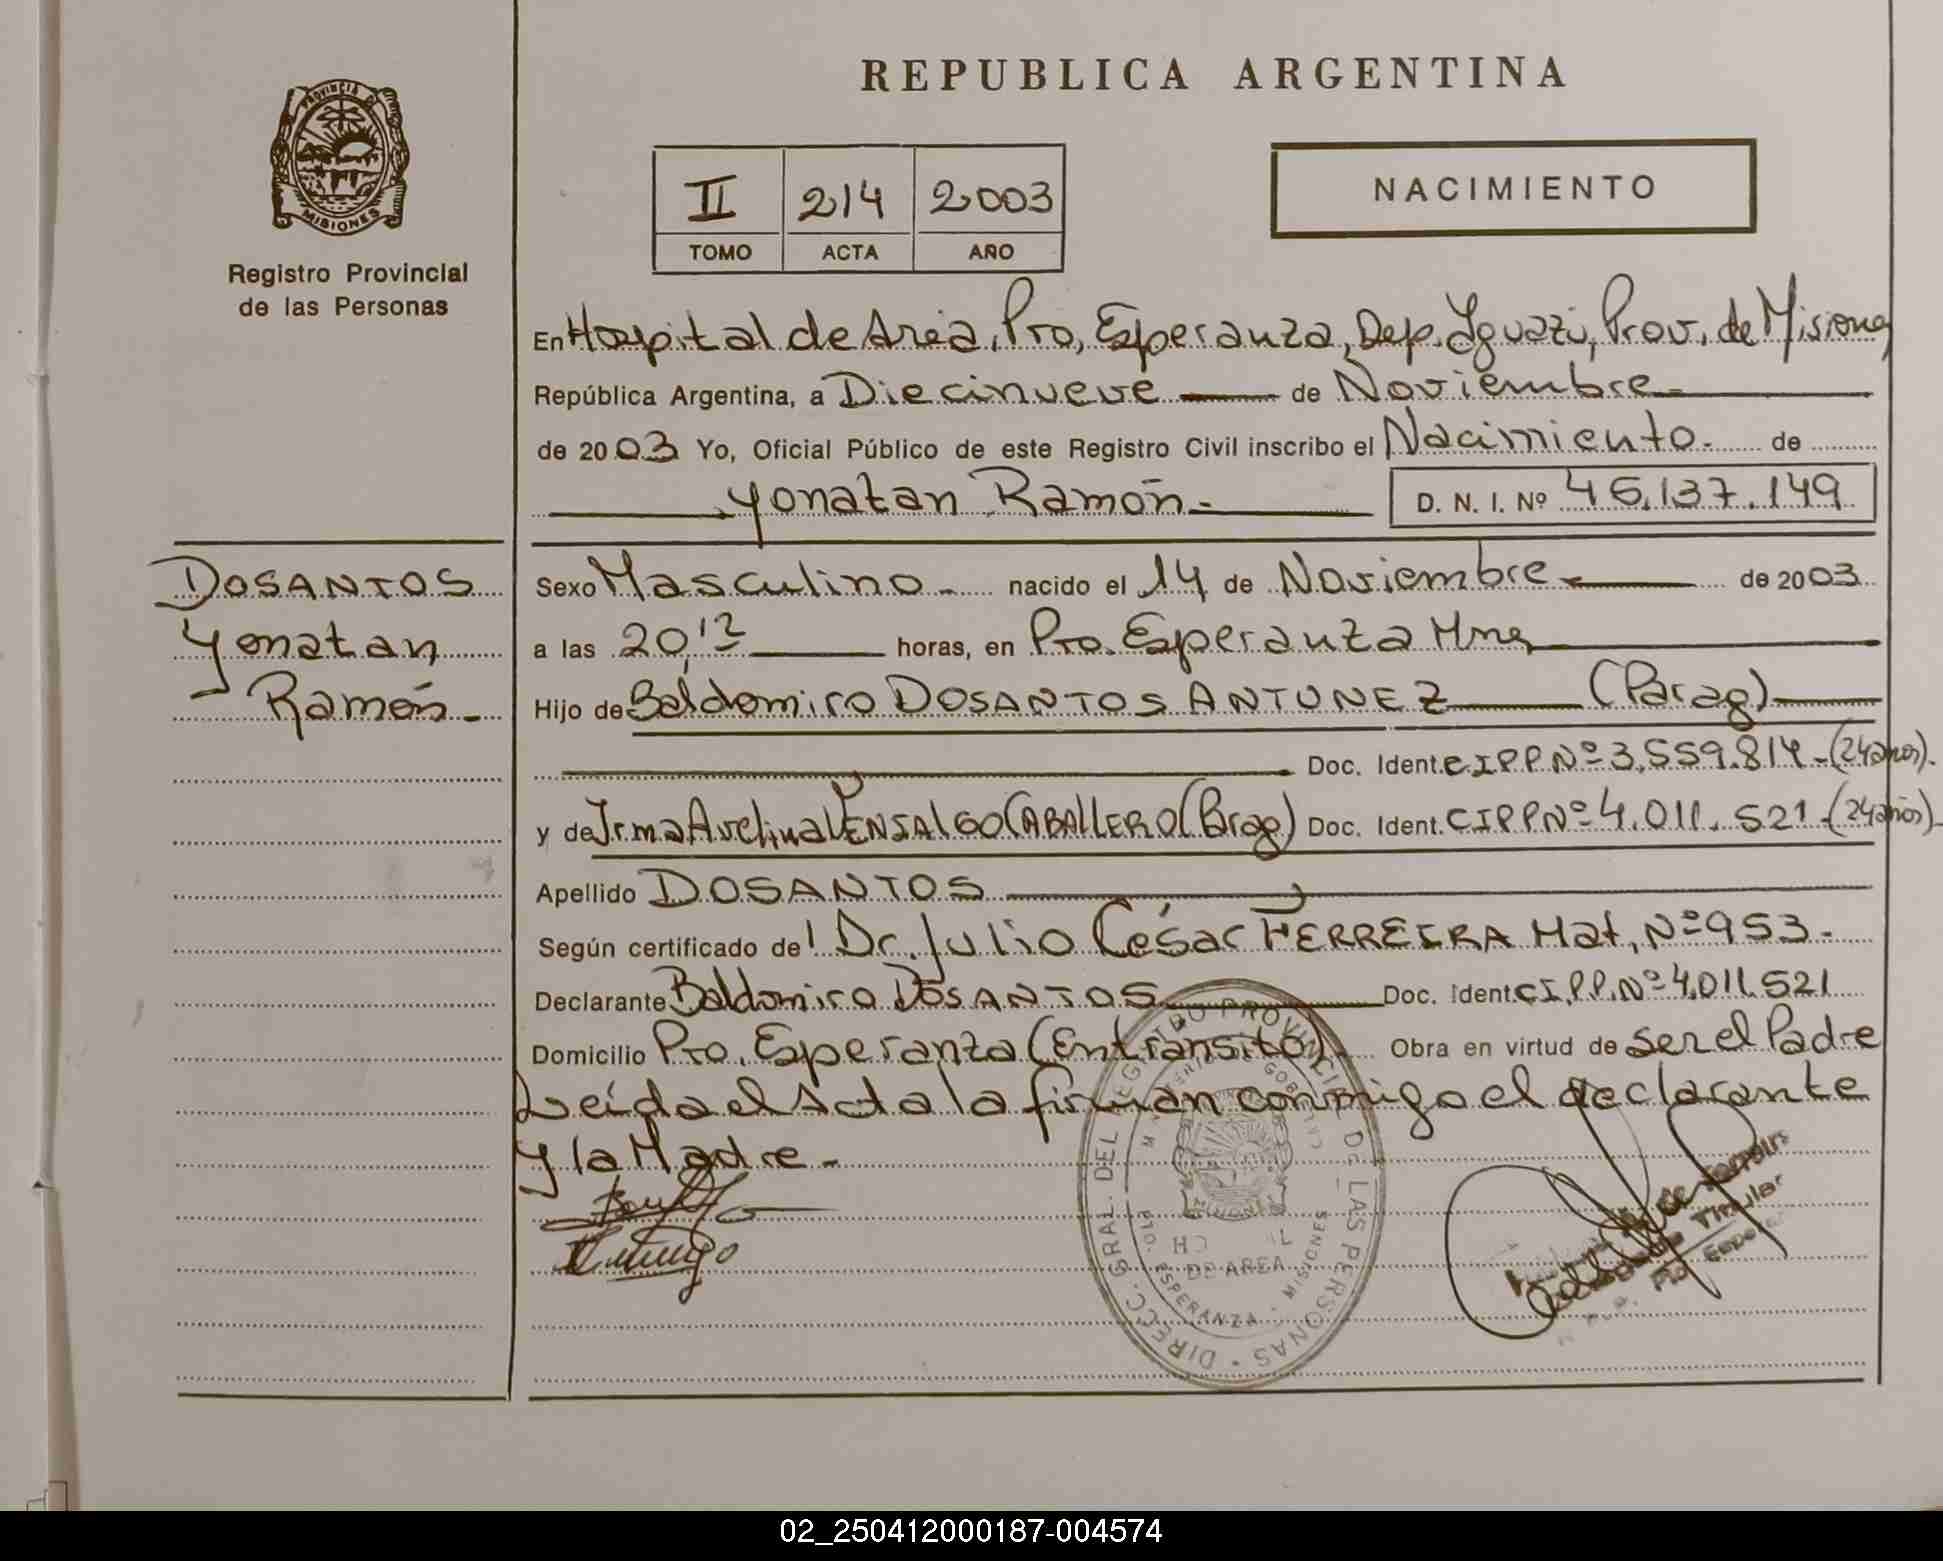 REPUBLICA ARGENTINA
PROVINCIA DE
MISIONES
Registro Provincial
de las Personas
II 214 2003
TOMO ACTA AÑO
NACIMIENTO
En Hospital de Area, Pto, Esperanza, Dep. Iguazú, Prov. de Misiones
República Argentina, a Diecinueve de Noviembre
de 2003 Yo, Oficial Público de este Registro Civil inscribo el Nacimiento. de
Yonatan Ramón.-
D. N. I. Nº 45.137.149
DOSANTOS
Yonatan
Ramón.-
Sexo Masculino.- nacido el 14 de Noviembre de 2003
a las 20,12 horas, en Pto. Esperanza Mnes
Hijo de Baldomiro DOSANTOS ANTUNEZ (Parag)
Doc. Ident. CIPP Nº 3.559.814-(24años).
y de Irma Avelina CABALLERO (Parag) Doc. Ident. CIPP Nº 4.011.521-(24años).
Apellido DOSANTOS
Según certificado de l Dr. Julio César FERREIRA Mat. Nº 953.-
Declarante Baldomiro DOSANTOS Doc. Ident. CI.PP.Nº 4.011.521
Domicilio Pto. Esperanza (En transito). Obra en virtud de ser el Padre
Leída el Acta la firman conmigo el declarante
y la Madre.-
DIRECC. GRAL. DEL REGISTRO PROVINCIAL DE LAS PERSONAS
DE AREA
PTO. ESPERANZA - MISIONES
Titular
02_250412000187-004574